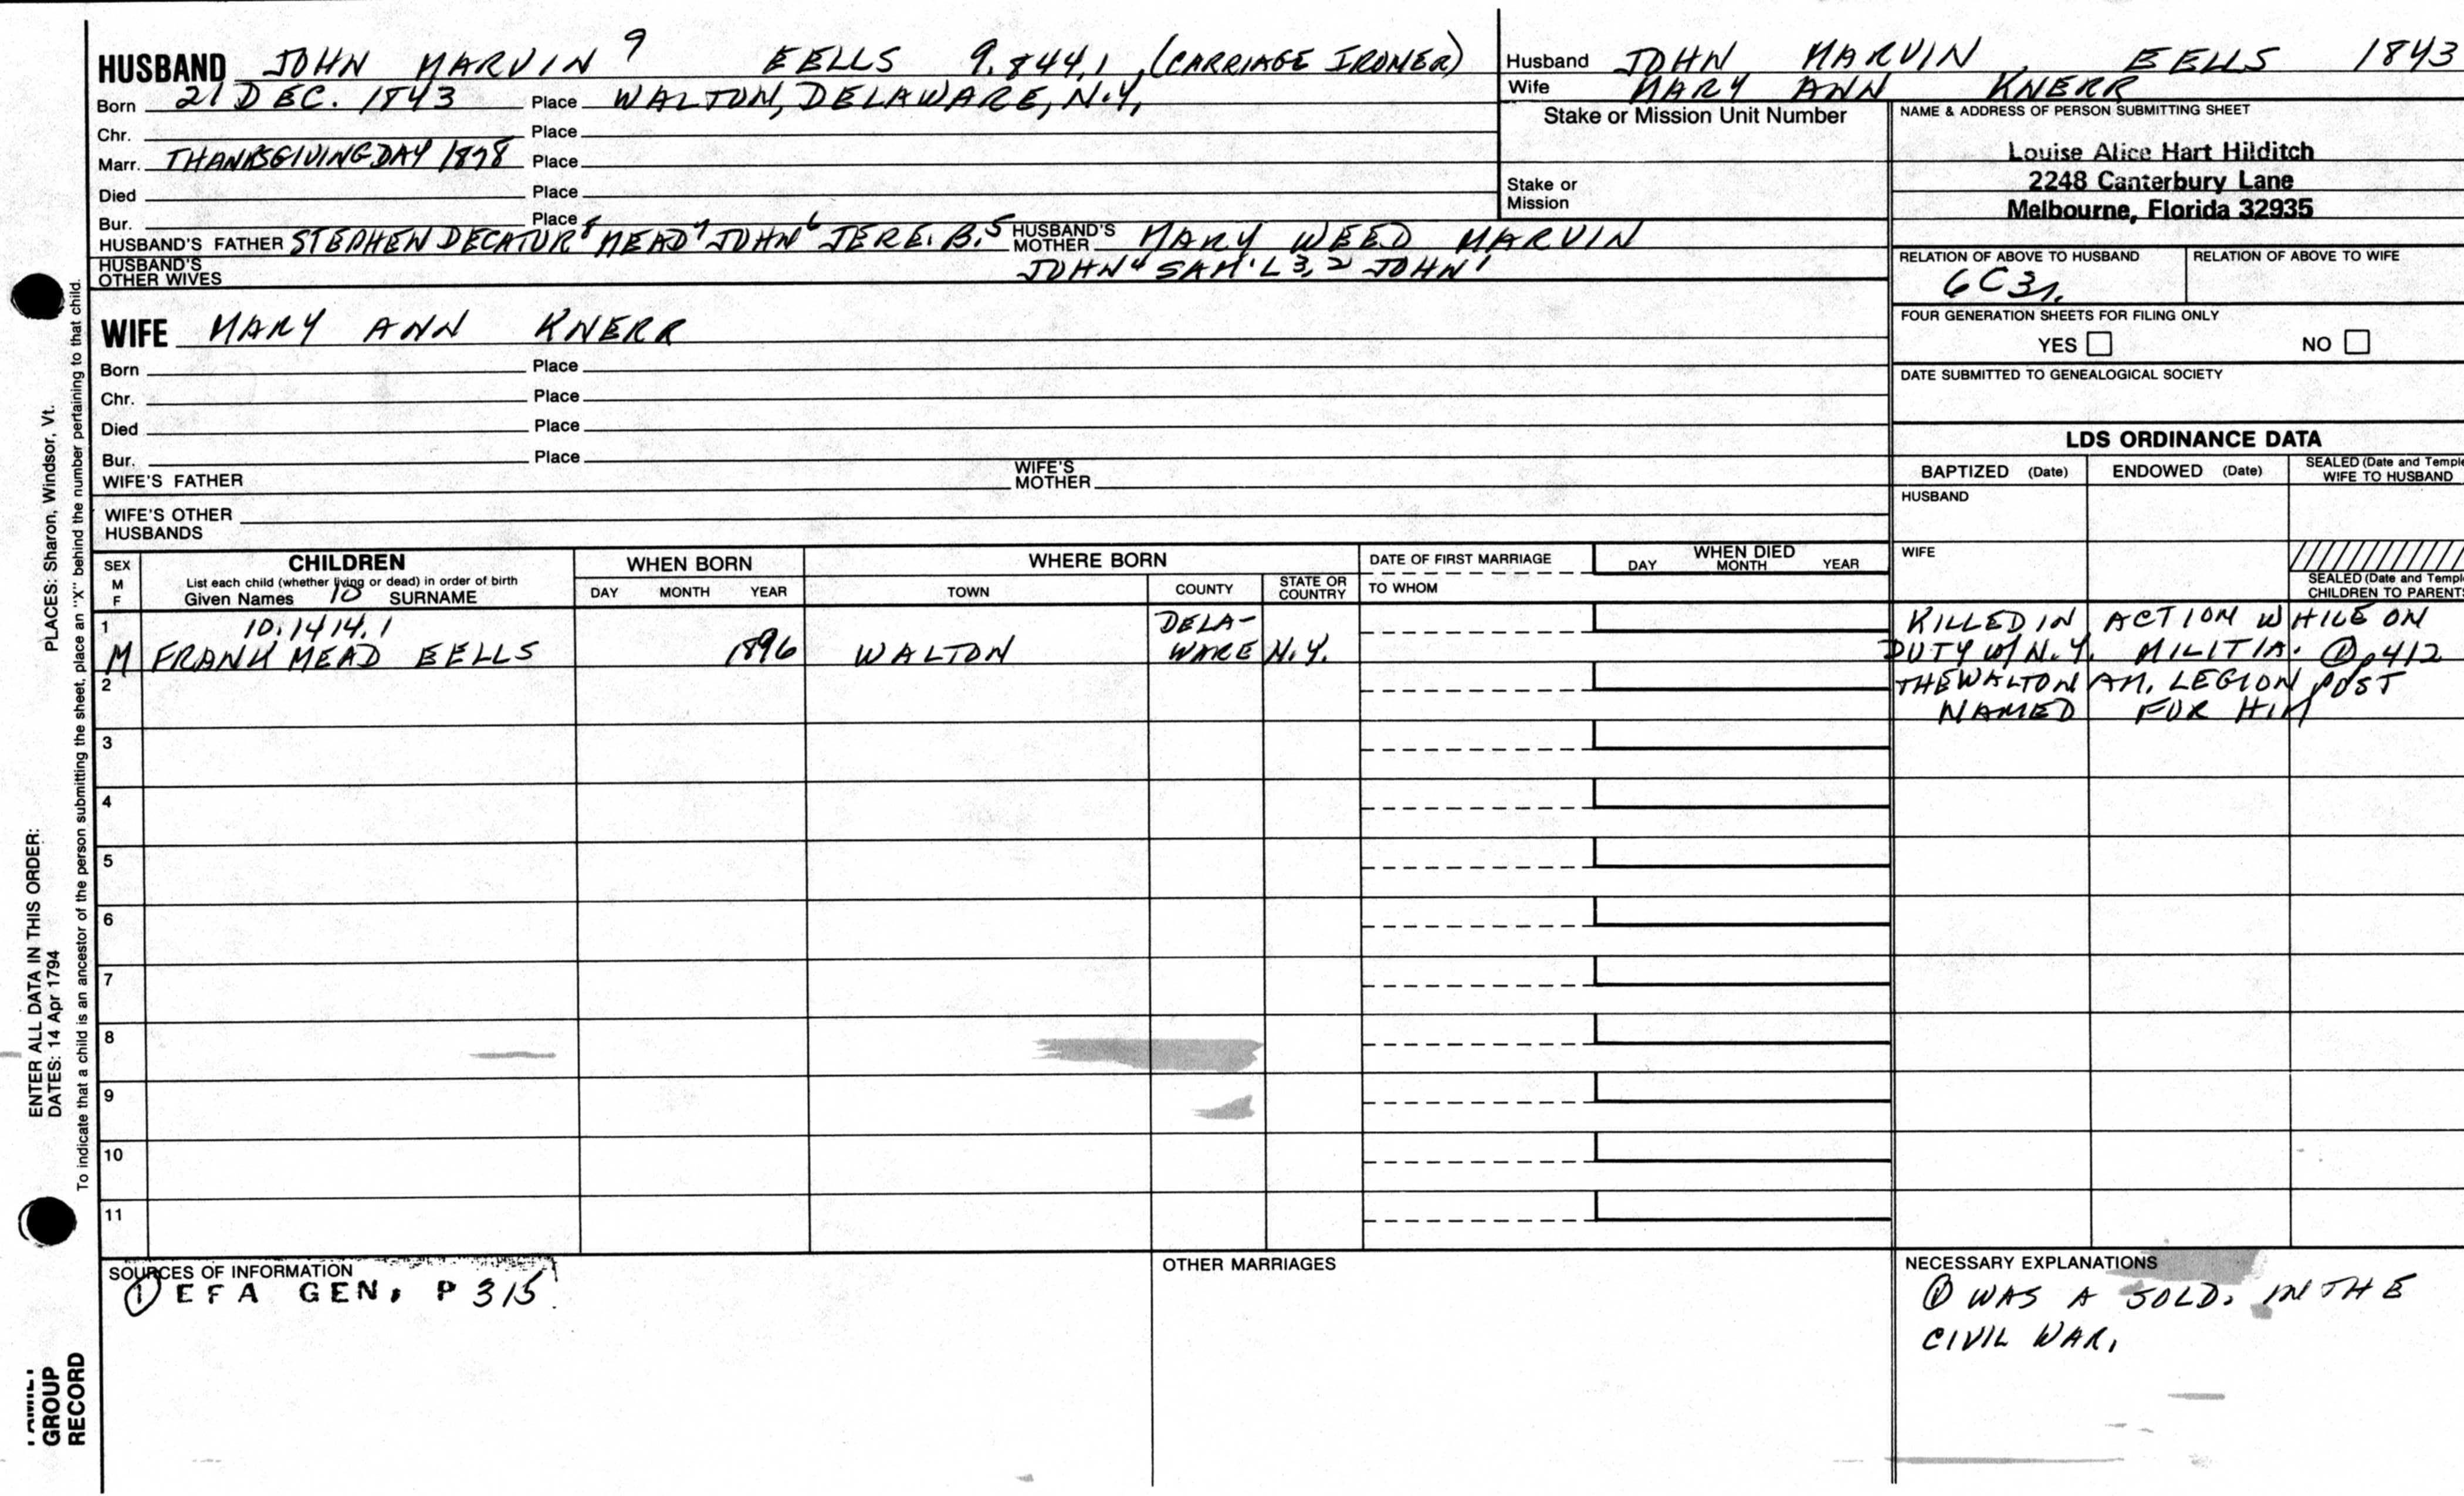 HUSBAND JOHN MARVIN 9 EELLS 9.844.1 (CARRIAGE IRONER)
Born 21 DEC. 1843 Place WALTON, DELAWARE, N.Y.
Chr. Place
Marr. THANKSGIVING DAY 1878 Place
Died Place
Bur. Place
HUSBAND'S FATHER STEPHEN DECATUR 8 MEAD 7 JOHN 6 JERE. B. 5 HUSBAND'S MOTHER MARY WEED MARVIN
HUSBAND'S OTHER WIVES JOHN 4 SAM'L 3, 2 JOHN 1
WIFE MARY ANN KNERR
Born Place
Chr. Place
Died Place
Bur. Place
WIFE'S FATHER WIFE'S MOTHER
WIFE'S OTHER HUSBANDS
Husband JOHN MARVIN EELLS 1843
Wife MARY ANN KNERR
Stake or Mission Unit Number
Stake or Mission
NAME & ADDRESS OF PERSON SUBMITTING SHEET
Louise Alice Hart Hilditch
2248 Canterbury Lane
Melbourne, Florida 32935
RELATION OF ABOVE TO HUSBAND RELATION OF ABOVE TO WIFE
6C3r.
FOUR GENERATION SHEETS FOR FILING ONLY
YES NO
DATE SUBMITTED TO GENEALOGICAL SOCIETY
LDS ORDINANCE DATA
BAPTIZED (Date) ENDOWED (Date) SEALED (Date and Temple WIFE TO HUSBAND
HUSBAND
WIFE
SEALED (Date and Temple CHILDREN TO PARENTS
SEX M F CHILDREN WHEN BORN WHERE BORN DATE OF FIRST MARRIAGE WHEN DIED
List each child (whether living or dead) in order of birth
Given Names 10 SURNAME DAY MONTH YEAR TOWN COUNTY STATE OR COUNTRY TO WHOM DAY MONTH YEAR
1 10.1414.1 DELA- KILLED IN ACTION WHILE ON
M FRANK MEAD EELLS 1896 WALTON WARE N.Y. DUTY W/ N.Y. MILITIA. ① p 412
2 THE WALTON AM. LEGION POST
NAMED FOR HIM
3
4
5
6
7
8
9
10
11
SOURCES OF INFORMATION
① EFA GEN. P 315.
OTHER MARRIAGES
NECESSARY EXPLANATIONS
① WAS A SOLD. IN THE
CIVIL WAR.
PLACES: Sharon, Windsor, Vt.
ENTER ALL DATA IN THIS ORDER:
DATES: 14 Apr 1794
To indicate that a child is an ancestor of the person submitting the sheet, place an "X" behind the number pertaining to that child.
FAMILY
GROUP
RECORD